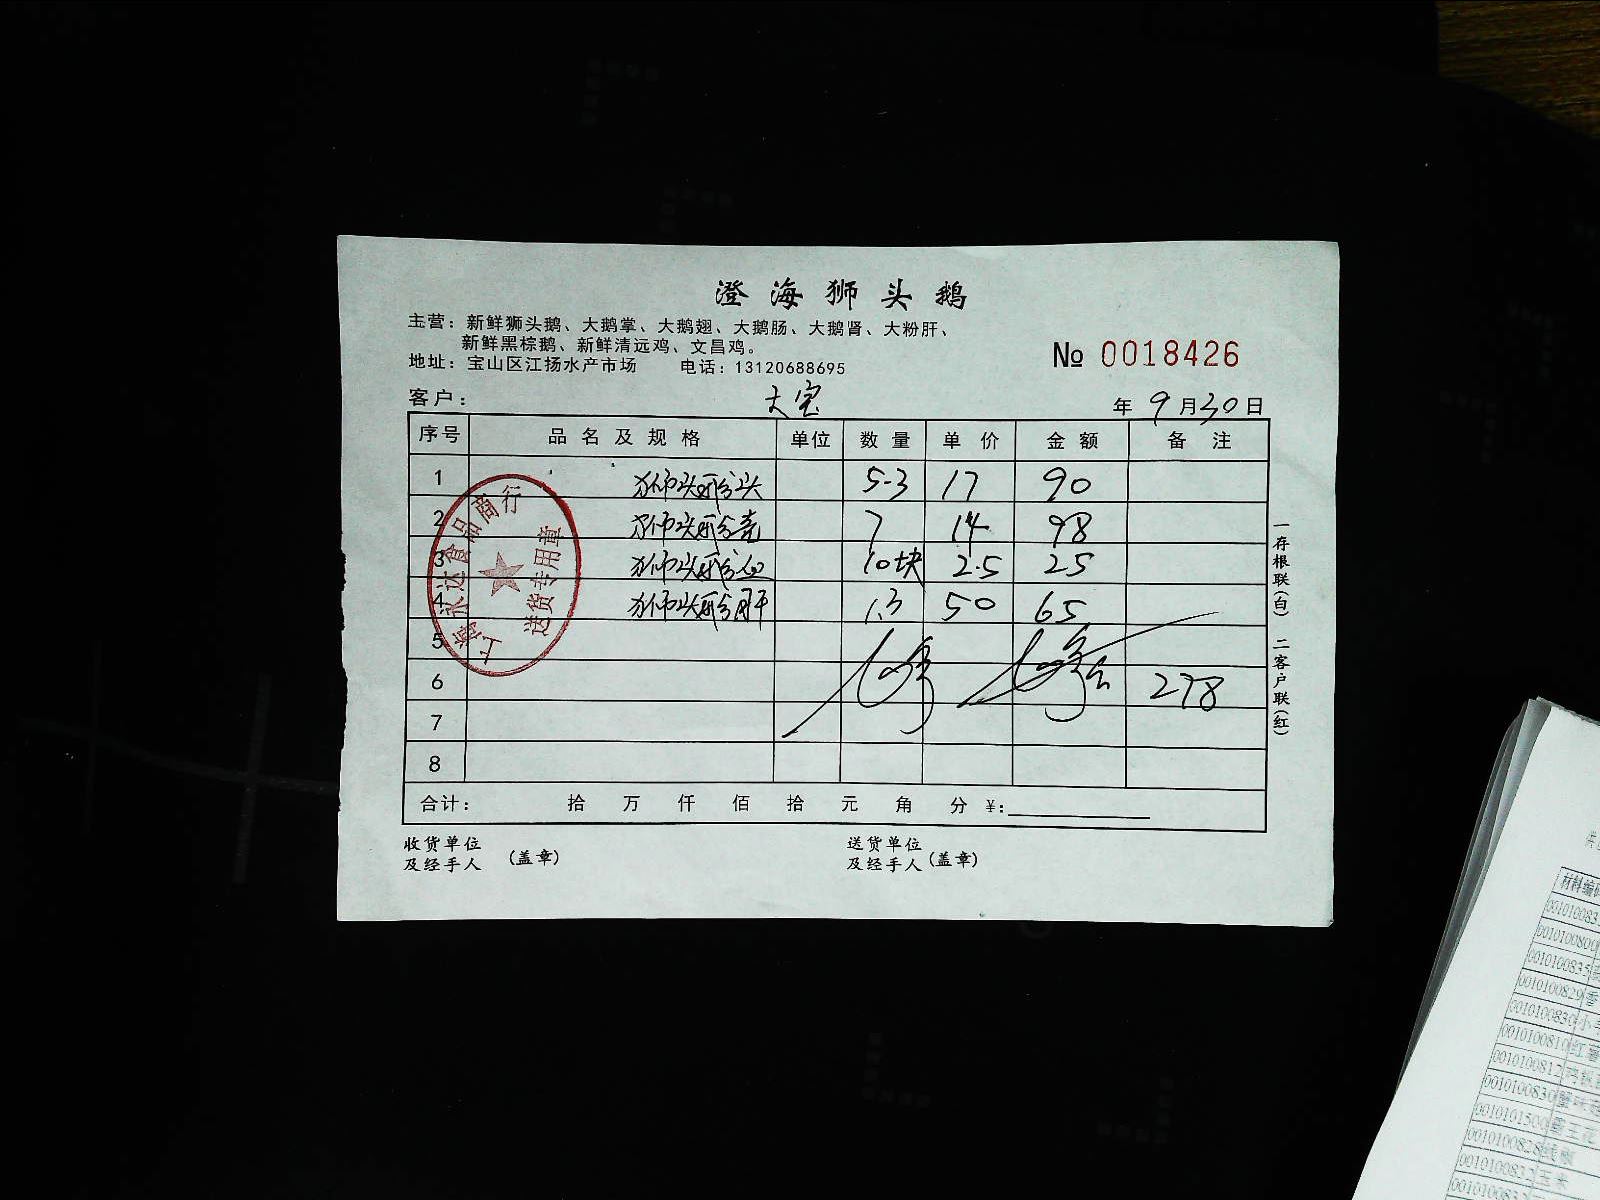 澄海狮头鹅
主营：新鲜狮头鹅、大鹅掌、大鹅翅、大鹅肠、大鹅肾、大粉肝、
新鲜黑棕鹅、新鲜清远鸡、文昌鸡。
地址：宝山区江扬水产市场 电话：13120688695
№ 0018426
客户： 大宝 年 9 月 30 日
序号 品名及规格 单位 数量 单价 金额 备注
1 狮头鹅头 5.3 17 90
2 狮头鹅 7 14 98
3 狮头鹅血 10块 2.5 25
4 狮头鹅肝 1.3 50 65
5
6 278
7
8
合计： 拾 万 仟 佰 拾 元 角 分 ¥：
收货单位
及经手人 （盖章）
送货单位
及经手人（盖章）
一存根联（白） 二客户联（红）
上海 永达食品商行
送货专用章
材料编
001010083
001010080
001010083
0010100829 香
001010083 小
001010081 红
001010081
001010083 蟹味
0010101500
0010100828
001010083 玉米